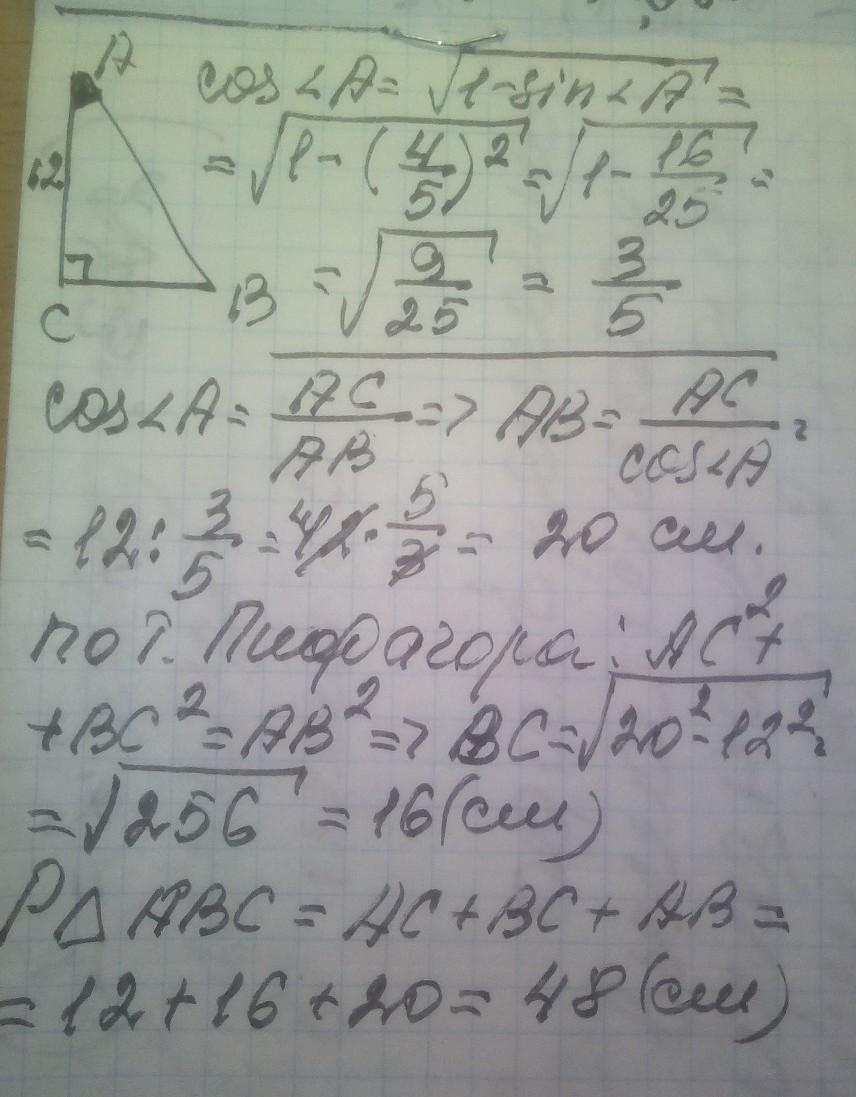 A
12
C
B
cos∠A = √(1-sin∠A) =
= √(1 - (4/5)²) = √(1 - 16/25) =
= √(9/25) = 3/5
cos∠A = AC/AB => AB = AC/cos∠A =
= 12 : 3/5 = 12 · 5/3 = 20 см.
по т. Пифагора: AC² +
+ BC² = AB² => BC = √(20² - 12²) =
= √256 = 16 (см)
P△ABC = AC + BC + AB =
= 12 + 16 + 20 = 48 (см)